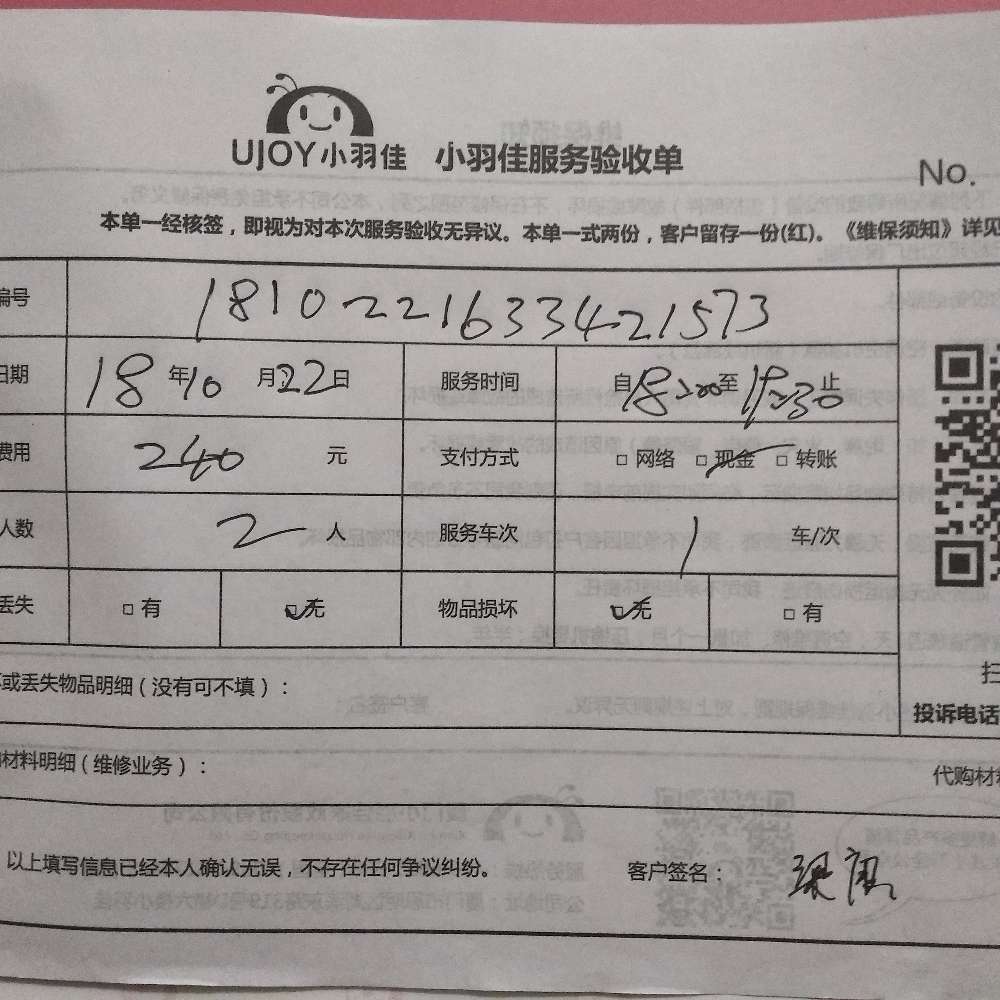 UJOY小羽佳 小羽佳服务验收单
No.
本单一经核签，即视为对本次服务验收无异议。本单一式两份，客户留存一份(红)。《维保须知》详见
编号 181022163342 1573
日期 18年10月22日 服务时间 自18:00至19:30止
费用 240元 支付方式 □网络 □现金 □转账
人数 2人 服务车次 1车/次
丢失 □有 □无 物品损坏 □无 □有
扫
或丢失物品明细(没有可不填)：
投诉电话
材料明细(维修业务)：
代购材
以上填写信息已经本人确认无误，不存在任何争议纠纷。 客户签名：